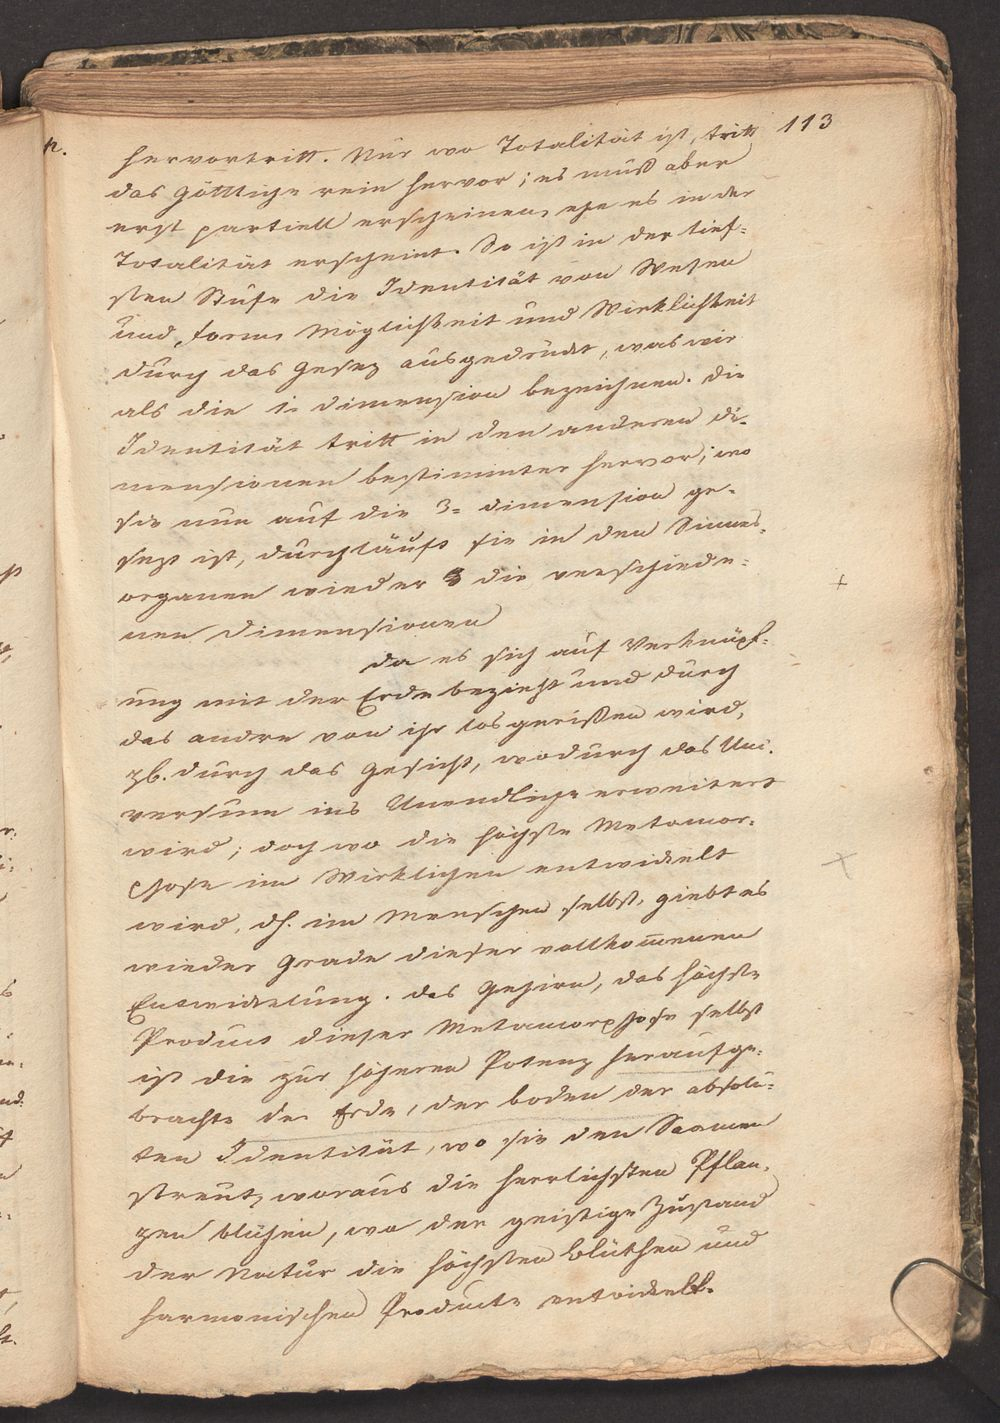 113
hervortritt. Nur wo Totalität ist, tritt
das Göttliche rein hervor; es muß aber
erst partiell erscheinen, ehe es in der
Totalität erscheint. So ist in der tief-
sten Stufe die Identität von Wesen
und Form, Möglichkeit und Wirklichkeit
durch das Gesez ausgedrückt, was wir
als die 1. Dimension bezeichnen. Die
Identität tritt in den anderen Di-
mensionen bestimmter hervor; wo
sie nun auf die 3= Dimension ge-
sezt ist, durchläuft sie in den Sinnes-
organen wieder die verschiede-
nen Dimensionen
da es sich auf Verknüpf-
ung mit der Erde bezieht und durch
das andre von ihr losgerißen wird,
zb. durch das Gesicht, wodurch das Uni-
versum ins Unendliche erweitert
wird; doch wo die höchste Metamor-
phose im Wirklichen entwickelt
wird, dh. im Menschen selbst, giebt es
wieder Grade dieser vollkom̅enen
Entwickelung. Das Gehirn, das höchste
Product dieser Metamorphose selbst
ist die zur höheren Potenz heraufge-
brachte der Erde, der Boden der absolu-
ten Identität, wo sie den Saamen
streut, woraus die herrlichsten Pflan-
zen blühen, wo der geistige Zustand
der Natur die höchsten Blüthen und
harmonischen Producte entwickelt.